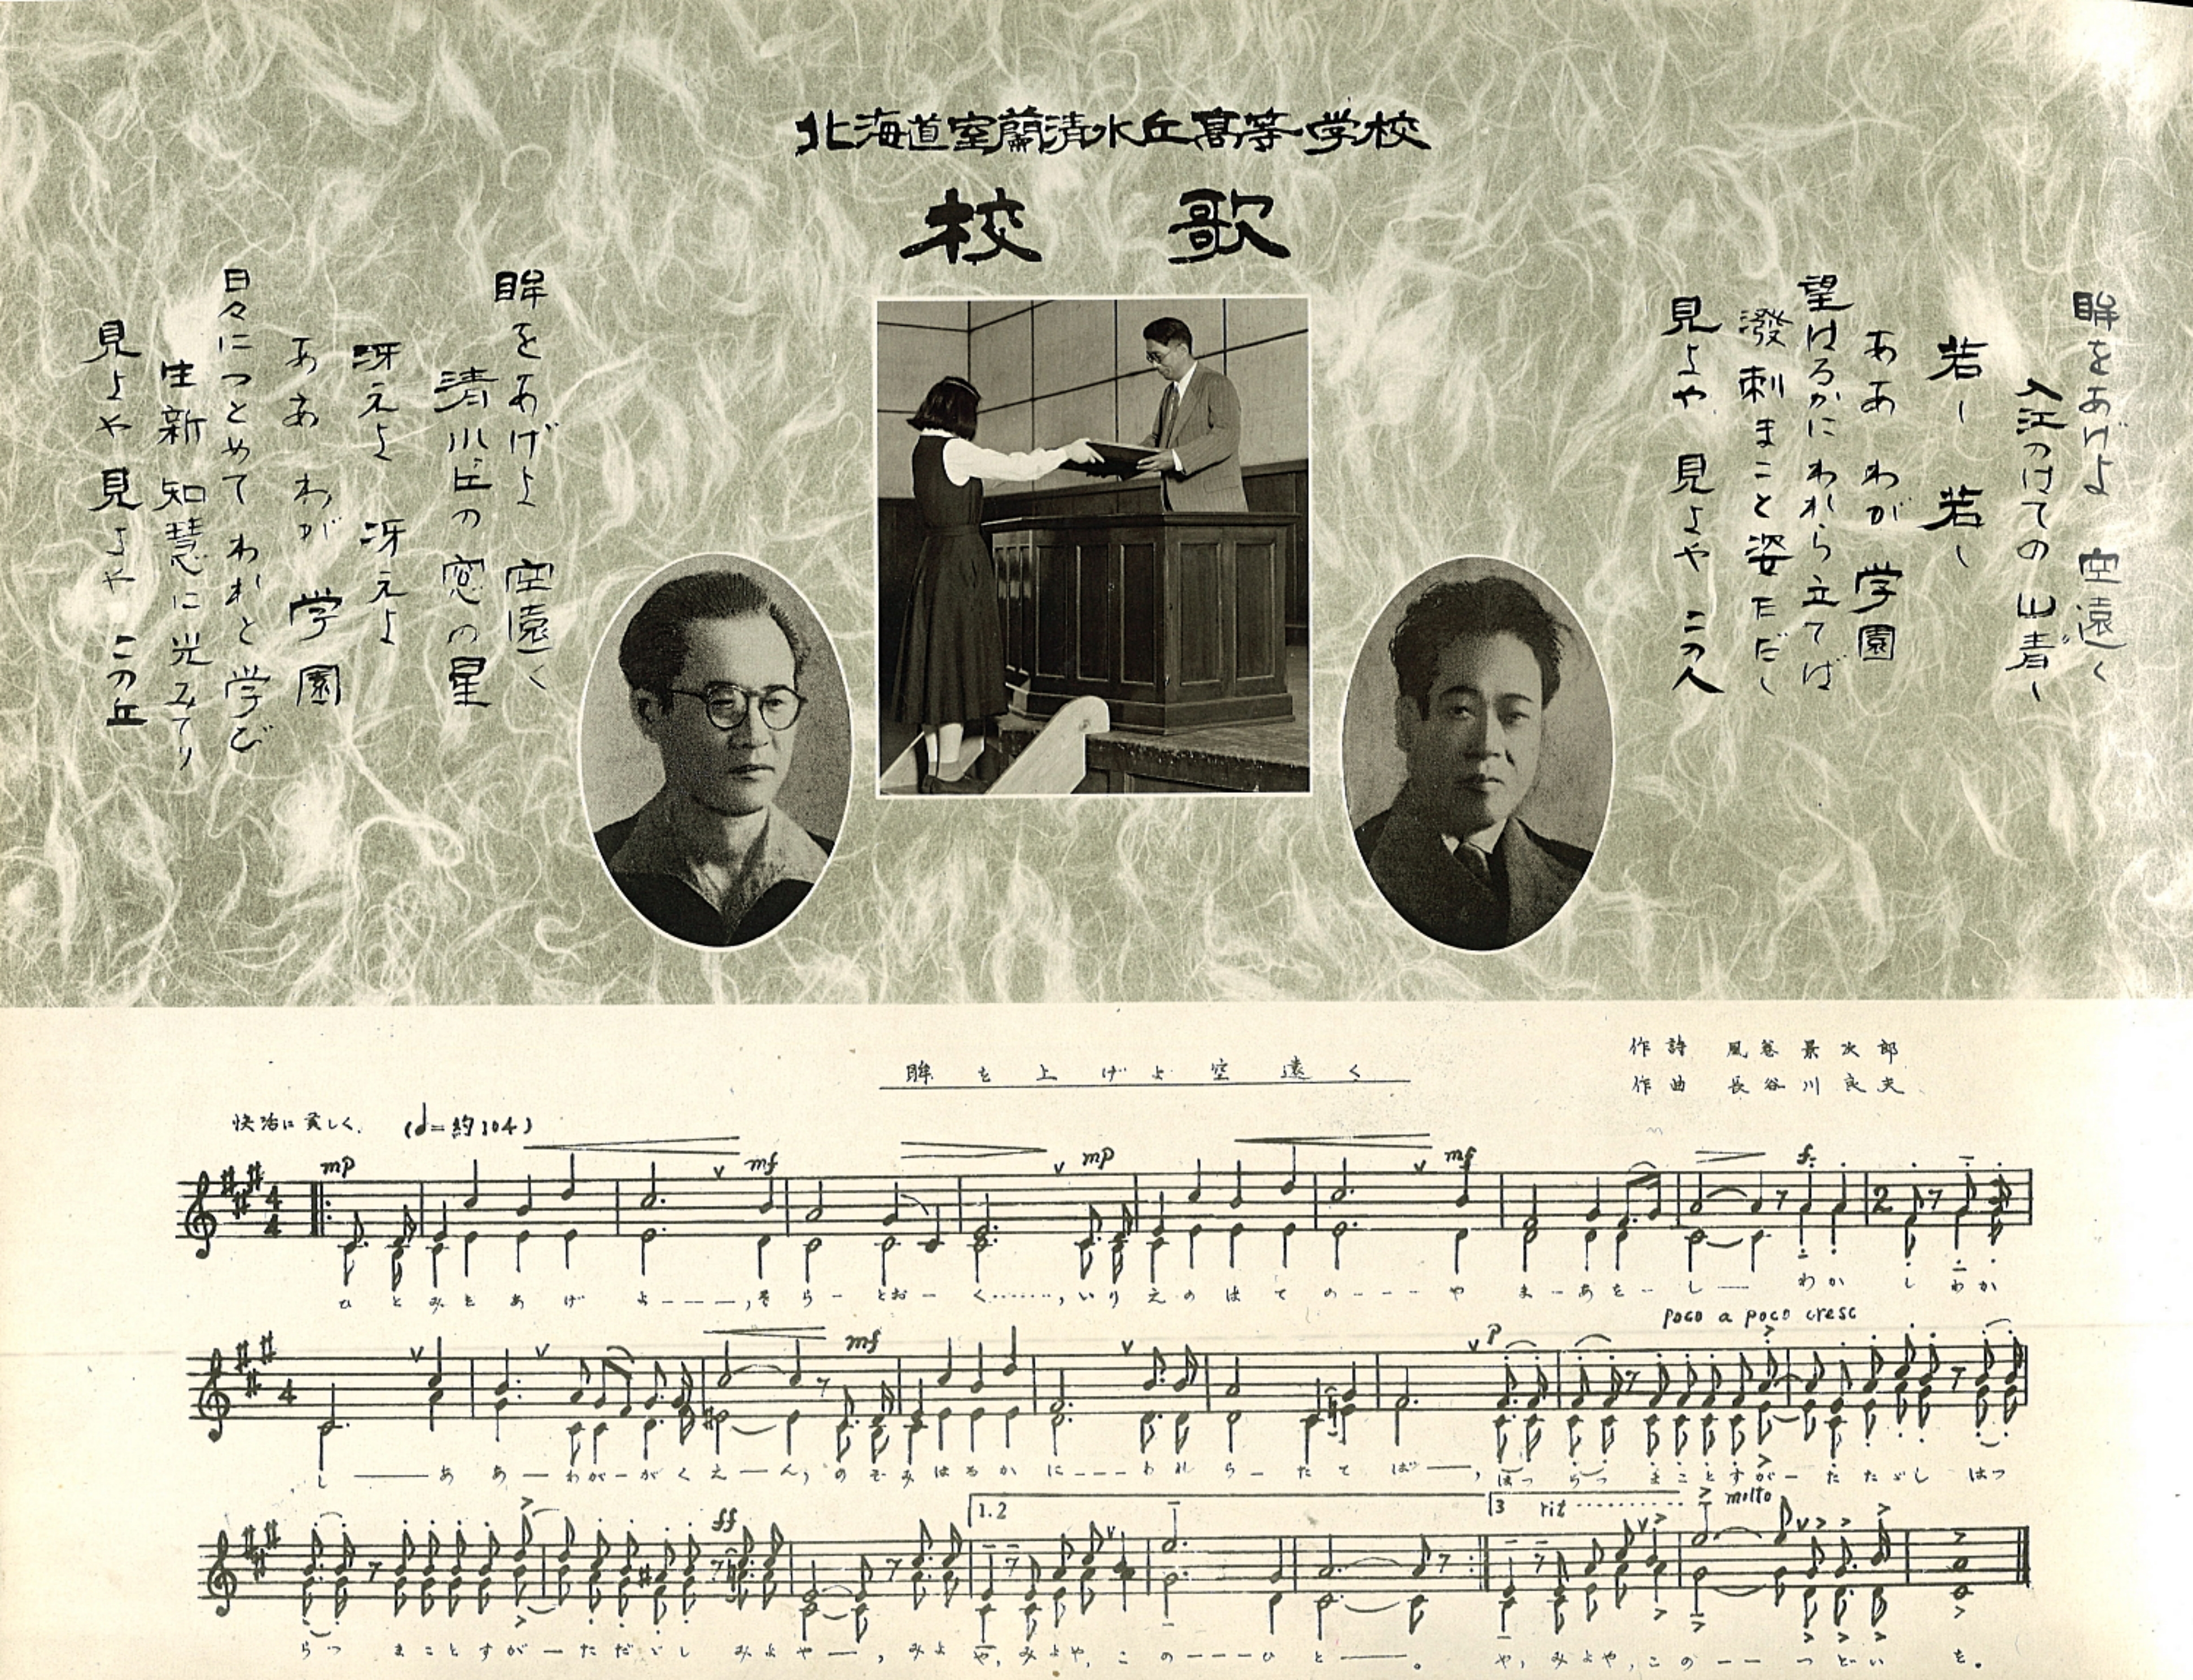 北海道室蘭清水丘高等学校
校歌
眸をあげよ 空遠く
入江のはての 山青し
若し 若し
ああ わが 学園
望はろかに われら立てば
潑剌まこと姿ただし
見よや 見よや この人
眸をあげよ 空遠く
清水丘の窓の星
冴えよ 冴えよ
ああ わが 学園
日々につとめて われと学び
生新 知慧に光みてり
見よや 見よや この丘
眸を上げよ空遠く
作詩 風巻景次郎
作曲 長谷川良夫
快活に美しく. (𝅗𝅥=約104)
mp mf mp mf f.
4
4
2
ひとみをあげよ---,そらーとおーく……,いりえのはての----やまーあをーしーわかしわか
poco a poco cresc
mf p
4
しーーああーわがーがくえーん,のぞみはろかに---われらーたてばー,はつらつまことすがーたただしはつ
1.2
3 rit molto
ff
らつまことすがーたただしみよやー,みよや,みよや,この---ひとー。や,みよや,この--つどいを。